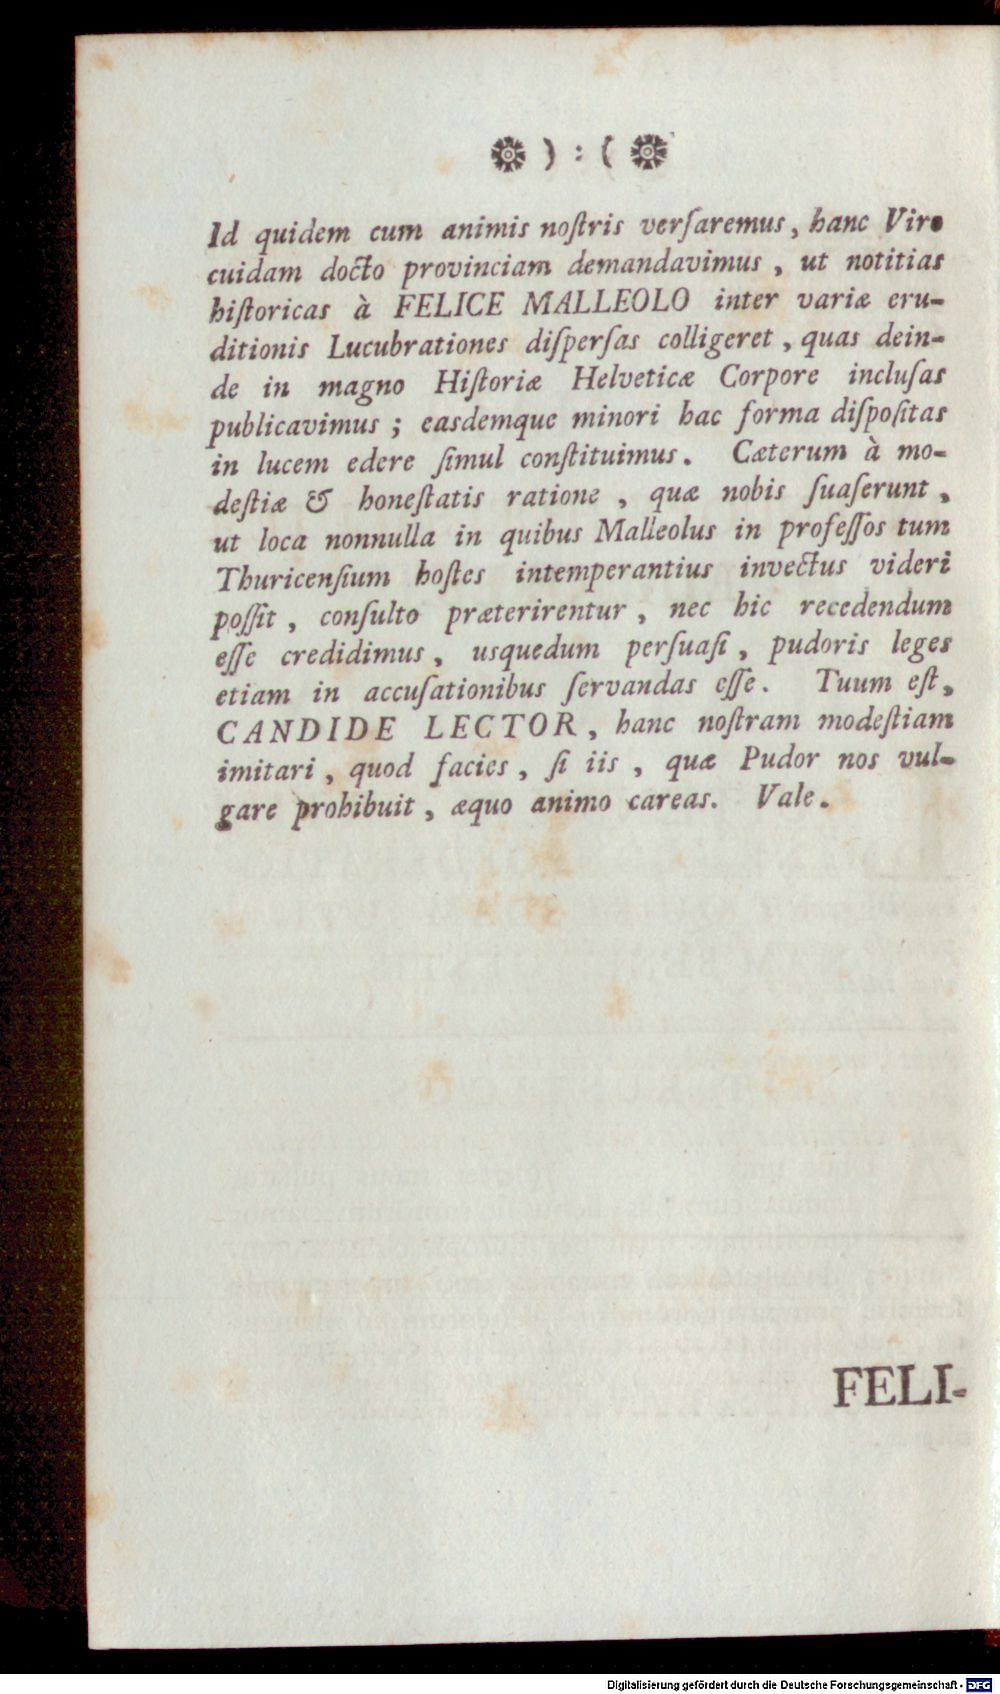 ❁ ) : ( ❁
Id quidem cum animis noſtris verſaremus, hanc Viro
cuidam docto provinciam demandavimus, ut notitias
hiſtoricas à FELICE MALLEOLO inter variæ eru-
ditionis Lucubrationes diſperſas colligeret, quas dein-
de in magno Hiſtoriæ Helveticæ Corpore incluſas
publicavimus; easdemque minori hac forma diſpoſitas
in lucem edere ſimul conſtituimus. Cæterum à mo-
deſtiæ & honeſtatis ratione, quæ nobis ſuaſerunt,
ut loca nonnulla in quibus Malleolus in profeſſos tum
Thuricenſium hoſtes intemperantius invectus videri
poſſit, conſulto præterirentur, nec hic recedendum
eſſe credidimus, usquedum perſuaſi, pudoris leges
etiam in accuſationibus ſervandas eſſe. Tuum eſt,
CANDIDE LECTOR, hanc noſtram modeſtiam
imitari, quod facies, ſi iis, quæ Pudor nos vul-
gare prohibuit, æquo animo careas. Vale.
FELI-
Digitalisierung gefördert durch die Deutsche Forschungsgemeinschaft - DFG